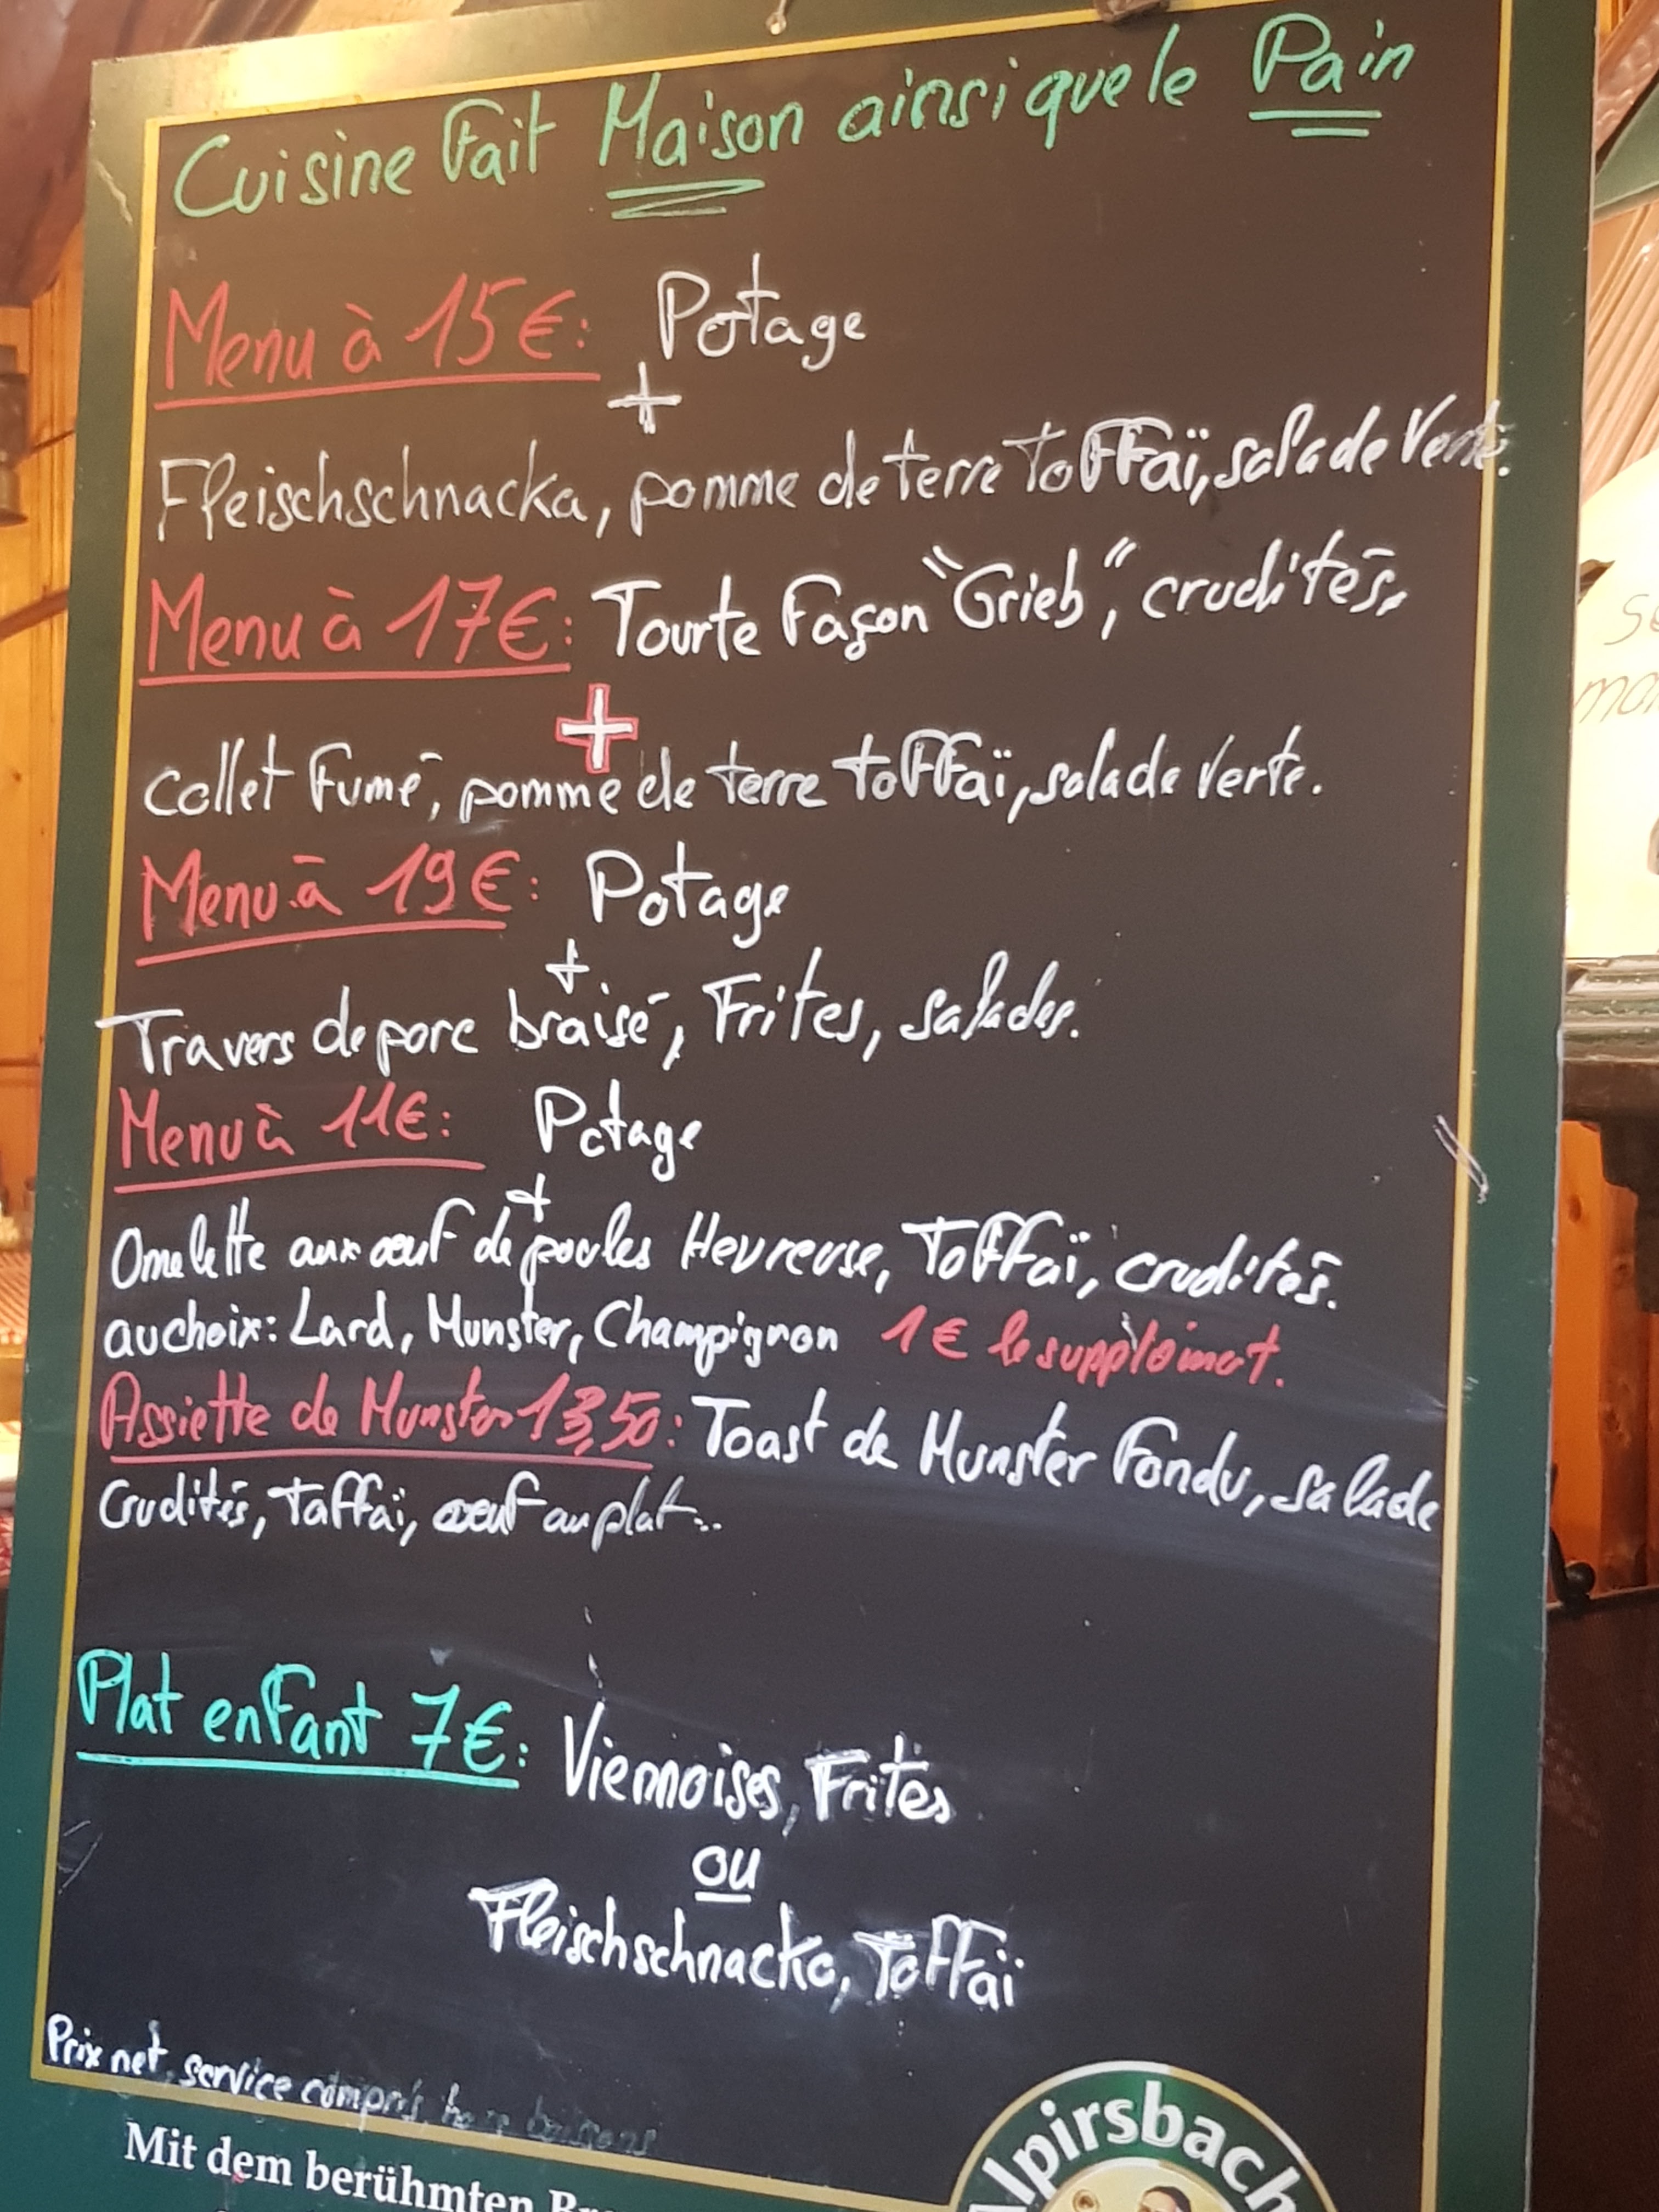 Cuisine Fait Maison ainsi que le Pain
Menu à 15€: Potage
+
Fleischschnacka, pomme de terre Toffaï, salade Verte.
Menu à 17€: Tourte Façon "Grieb", crudités,
+
Collet Fumé, pomme de terre toffaï, salade verte.
Menu à 19€: Potage
+
Travers de porc braisé, Frites, salades.
Menu à 11€: Potage
+
Omelette aux œuf de poules Heureuse, Toffaï, crudités.
au choix: Lard, Munster, Champignon 1€ le supplément.
Assiette de Munster 13,50: Toast de Munster Fondu, salade
Crudités, Taffaï, œuf au plat...
Plat enfant 7€: Viennoises, Frites
ou
Fleischschnacka, Toffaï
Prix net, service compris, hors boissons
Mit dem berühmten
Alpirsbach